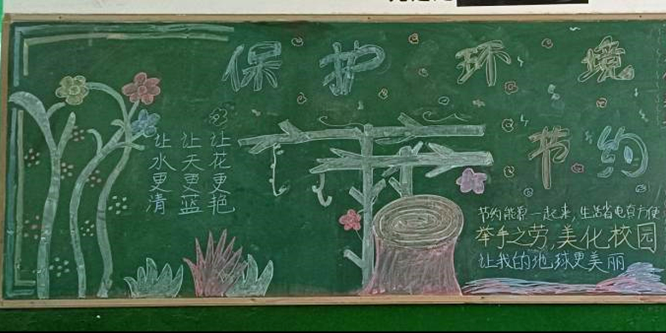 保护环境
节约
让花更艳
让天更蓝
让水更清
节约能源一起来,生活省电真方便
举手之劳,美化校园
让我的地球更美丽